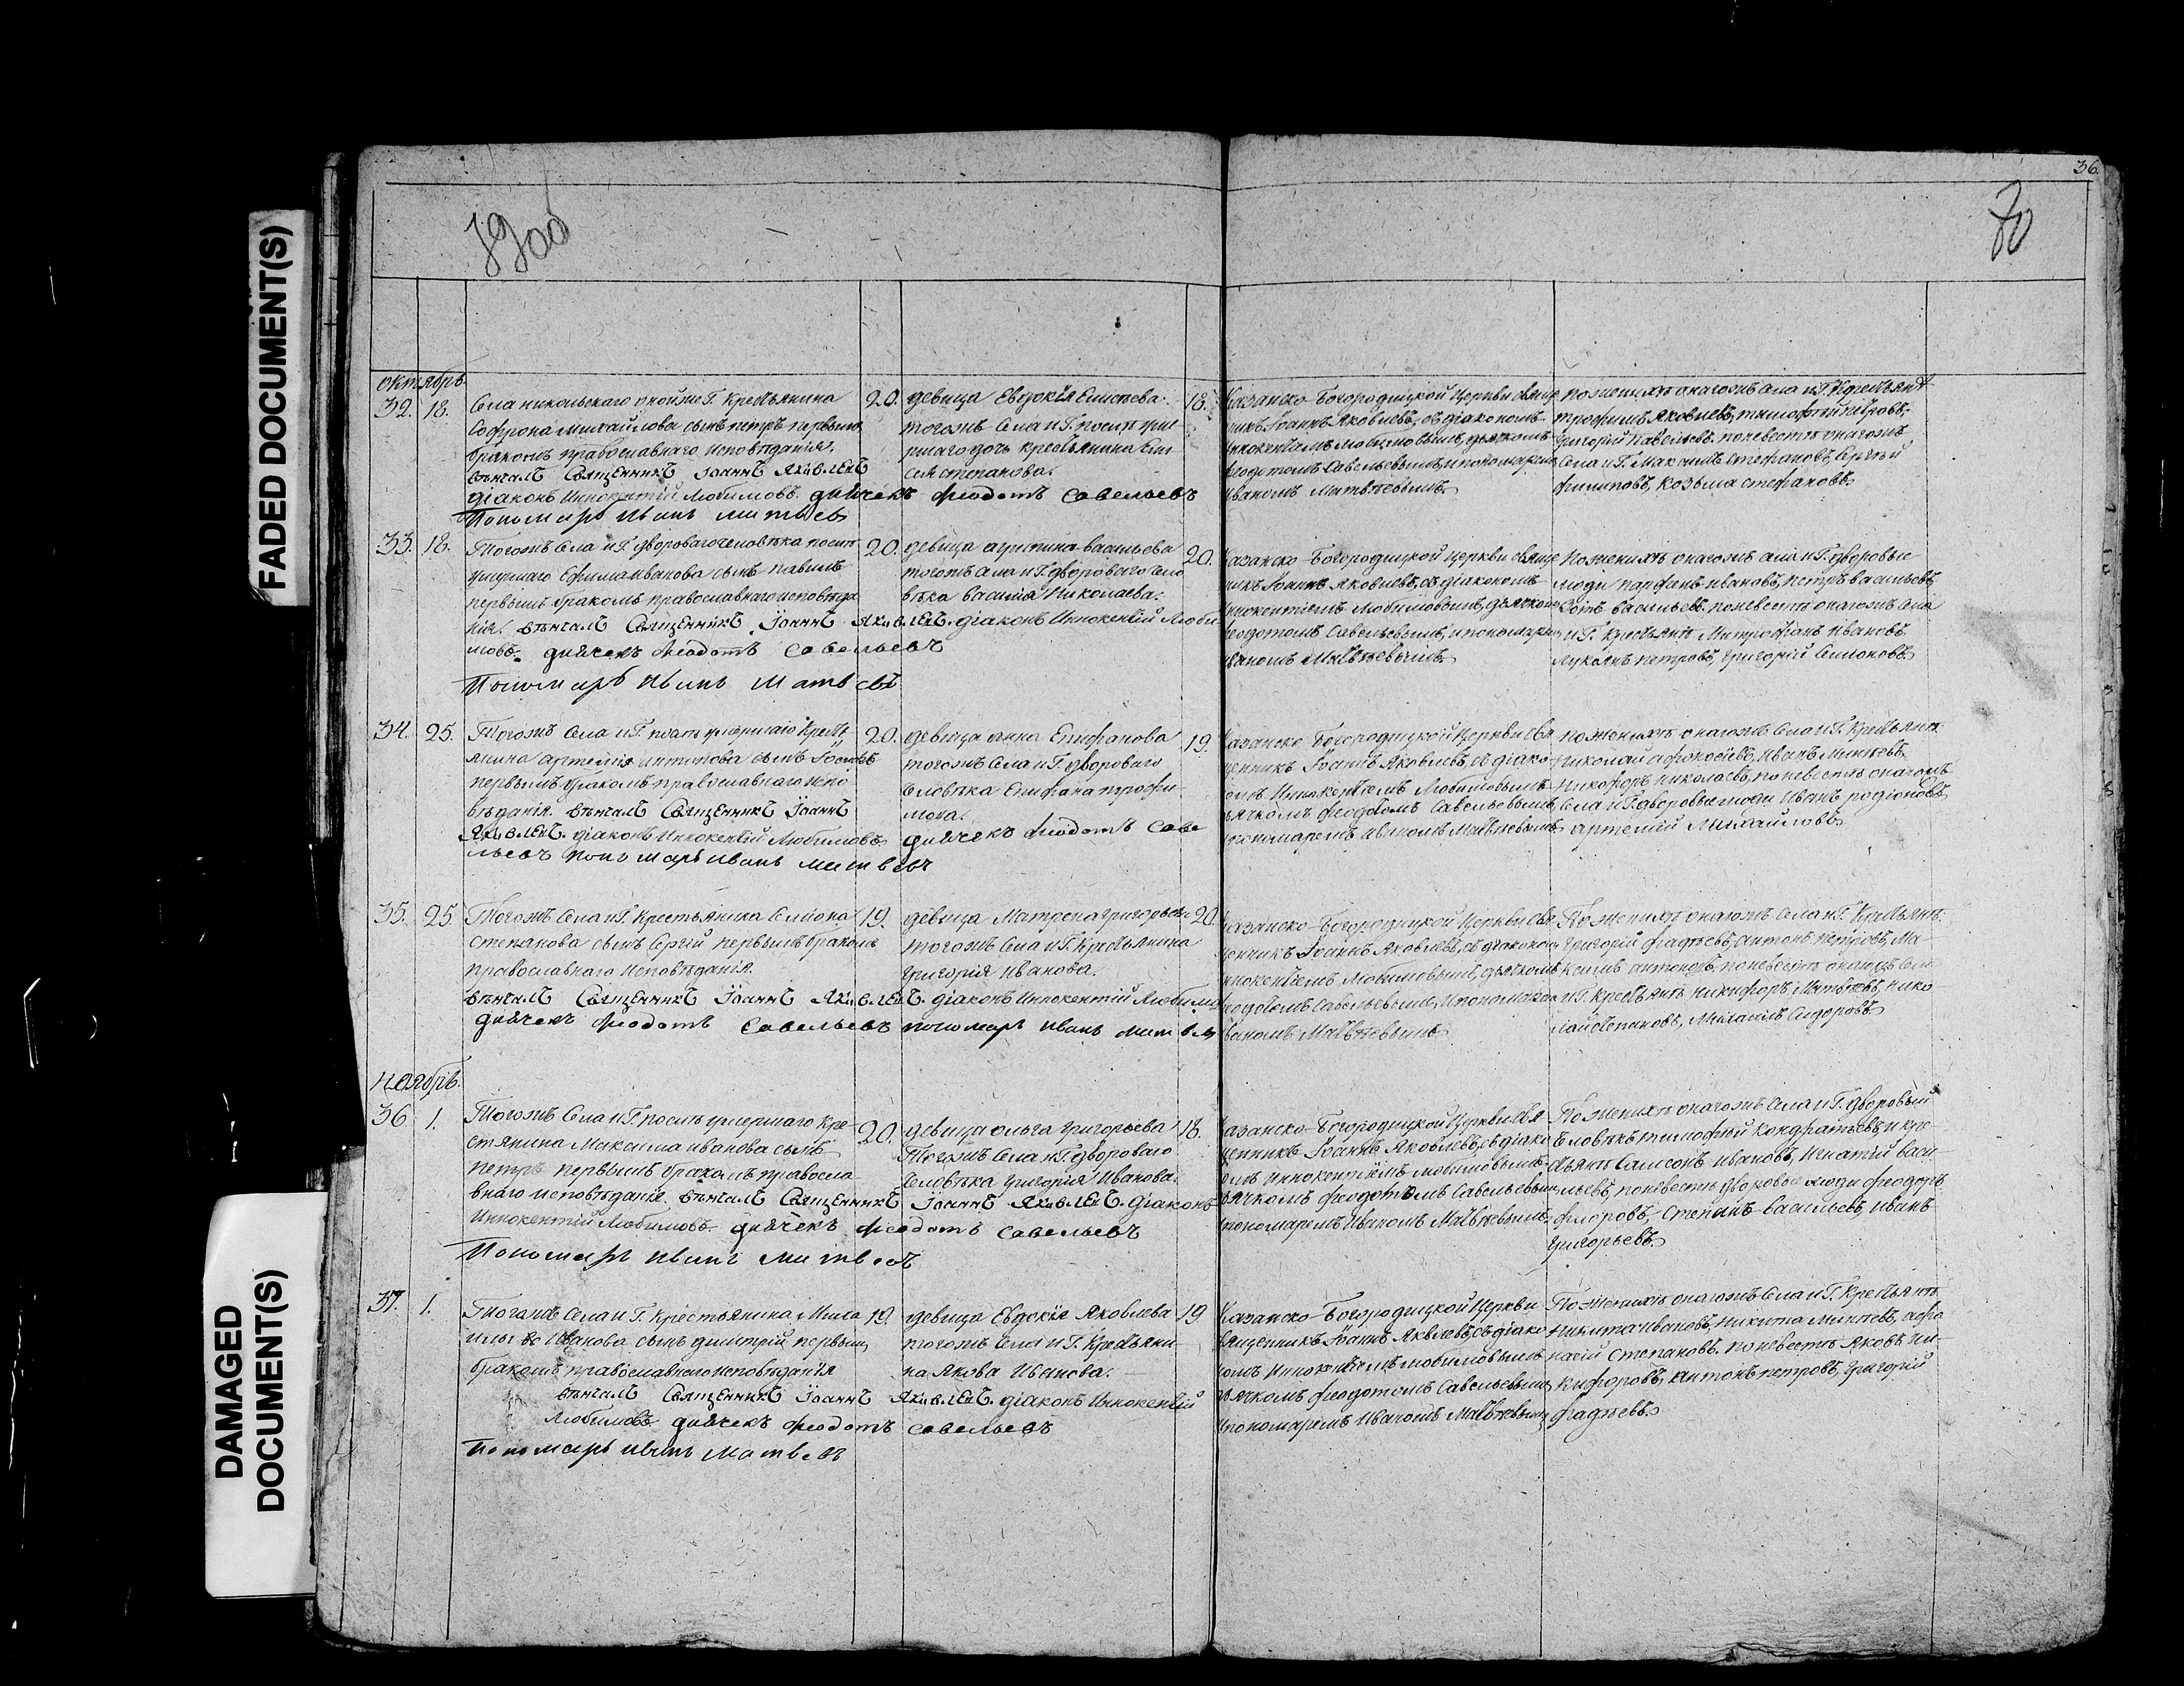 FADED DOCUMENT(S)
DAMAGED
DOCUMENT(S)
36.
79об
80
октябрь
32. 18.
Села никольскаго оной же Г. Крестьянина
Софрона михайлова сынъ петръ первымъ
бракомъ православнаго исповѣданія.
вѣнчалъ Священникъ Іоаннъ Яковлевъ
діаконъ Иннокентій Любимовъ. дьячекъ Феодотъ Савельевъ
Пономарь Иванъ Матвѣевъ
20.
девица Евдокія Елисѣева
тогожъ Села и Г. послѣ уме
ршаго дочь крестьянина Ели
сея степанова.
18.
Казанско-Богородицкой Церкви свящ
никъ Іоаннъ Яковлевъ, съ діакономъ
Иннокентіемъ Любимовымъ, дьячкомъ
Феодотомъ Савельевымъ, и пономаремъ
Иваномъ Матвѣевымъ.
По женихѣ онагожъ Села и Г. Крестьянѣ
трофимъ Яковлевъ, тимофей петровъ,
Григорій Павельевъ. поневестѣ онагожъ
Села и Г. Максимъ Стефановъ, Сергѣй
филиповъ, козьма стефановъ.
33. 18.
Тогожъ Села и Г. двороваго человѣка послѣ
умершаго Ефима иванова сынъ павелъ
первымъ бракомъ православнаго исповѣда
нія. вѣнчалъ Священникъ Іоаннъ Яковлевъ. діаконъ Иннокентій Люби
мовъ. дьячекъ Феодотъ Савельевъ
Пономарь Иванъ Матвѣевъ
20.
девица агрипина васильева
тогожъ села и Г. двороваго чело
вѣка василія Николаева.
20.
Казанско-Богородицкой церкви свяще
никъ Іоаннъ Яковлевъ, съ діакономъ
Иннокентіемъ Любимовымъ, дьячкомъ
Феодотомъ Савельевымъ, и пономаремъ
Иваномъ Матвѣевымъ.
По женихѣ онагожъ села и Г. дворовые
люди парфенъ ивановъ, петръ васильевъ,
васильевъ. поневестѣ онагожъ Села
и Г. крестьянѣ Митрофанъ Ивановъ
Лукьянъ петровъ, Григорій Симоновъ.
34. 25.
Тогожъ Села и Г. послѣ умершаго Кресть
янина артемія антипова сынъ
первымъ бракомъ православнаго испо
вѣданія. вѣнчалъ Священникъ Іоаннъ
Яковлевъ. діаконъ Иннокентій Любимовъ
дьячекъ Феодотъ Саве
льевъ пономарь Иванъ Матвѣевъ
20.
девица анна Епифанова
тогожъ Села и Г. двороваго
Человѣка Епифана трофи
мова.
19.
Казанско-Богородицкой Церкви Свя
щенникъ Іоаннъ Яковлевъ, съ діако
номъ Иннокентіемъ Любимовымъ
дьячкомъ Феодотомъ Савельевымъ,
пономаремъ Иваномъ Матвѣевымъ
По женихѣ онагожъ Села и Г. Крестьянѣ
Николай афонасьевъ, Иванъ
Никифоръ николаевъ, поневестѣ онагожъ
Села и Г. дворовые люди Иванъ родіоновъ
артемій Михайловъ.
35. 25
Тогожъ Села и Г. Крестьянина Симона
степанова сынъ Сергій первымъ бракомъ
православнаго исповѣданія.
вѣнчалъ Священникъ Іоаннъ Яковлевъ. діаконъ Иннокентій Любимо
дьячекъ Феодотъ Савельевъ пономарь Иванъ Матвѣевъ
19.
девица Матрена григорьева
тогожъ Села и Г. Крестьянина
Григорія Иванова.
20.
Казанско-Богородицкой Церкви Свя
щенникъ Іоаннъ Яковлевъ, съ діакономъ
Иннокентіемъ Любимовымъ, дьячкомъ
Феодотомъ Савельевымъ, и пономаремъ
Иваномъ Матвѣевымъ
По женихѣ онагожъ Села и Г. Крестьянѣ
Григорій фадѣевъ, антонъ петровъ, Ма
ксимъ антоновъ, поневестѣ онагожъ Села
и Г. Крестьянѣ Никифоръ Матвѣевъ, нико
лай Степановъ, Михаилъ Сидоровъ.
ноябрь.
36 1.
Тогожъ Села и Г. послѣ умершаго кре
стьянина Максима иванова сынъ
петръ первымъ бракомъ правосла
внаго исповѣданія. вѣнчалъ Священникъ Іоаннъ Яковлевъ. діаконъ
Иннокентій Любимовъ. дьячекъ Феодотъ Савельевъ
Пономарь Иванъ Матвѣевъ
20.
девица ольга григорьева
Тогожъ Села и Г. двороваго
Человѣка Григорія Иванова.
18.
Казанско-Богородицкой Церкви Свя
щенникъ Іоаннъ Яковлевъ, съ діако
номъ Иннокентіемъ Любимовымъ
дьячкомъ Феодотомъ Савельевымъ
и пономаремъ Иваномъ Матвѣевымъ.
По женихѣ онагожъ Села и Г. дворовый
Человѣкъ тимофей Кондратьевъ, и кре
стьянѣ Самсонъ ивановъ, Игнатій васи
льевъ, поневестѣ дворовые люди феодоръ
Степанъ васильевъ, иванъ
григорьевъ.
37. 1.
Тогожъ Села и Г. Крестьянина Миха
илы Иванова сынъ димитрій первымъ
бракомъ православнаго исповѣданія
вѣнчалъ Священникъ Іоаннъ Яковлевъ. діаконъ Иннокентій
Любимовъ дьячекъ Феодотъ Савельевъ
Пономарь Иванъ Матвѣевъ
19.
девица Евдокія Яковлева
тогожъ Села и Г. Крестьяни
на Якова Иванова.
19
Казанско-Богородицкой Церкви
Священникъ Іоаннъ Яковлевъ, съ діако
номъ Иннокентіемъ Любимовымъ
дьячкомъ Феодотомъ Савельевымъ
и пономаремъ Иваномъ Матвѣевымъ
По женихѣ онагожъ Села и Г. Крестьянѣ
Никита Ивановъ, Никита афа
насій Степановъ. поневестѣ Яковъ Ни
кифоровъ, антонъ петровъ, Григорій
фадѣевъ.